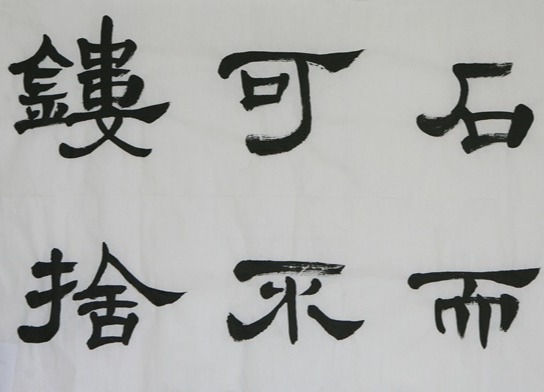 石可鏤
而不捨